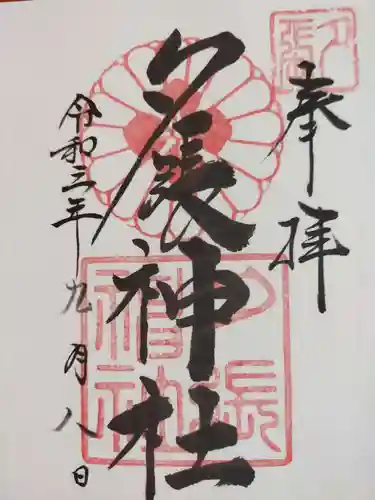 奉拝
夕張神社
夕張
神社
令和三年九月八日